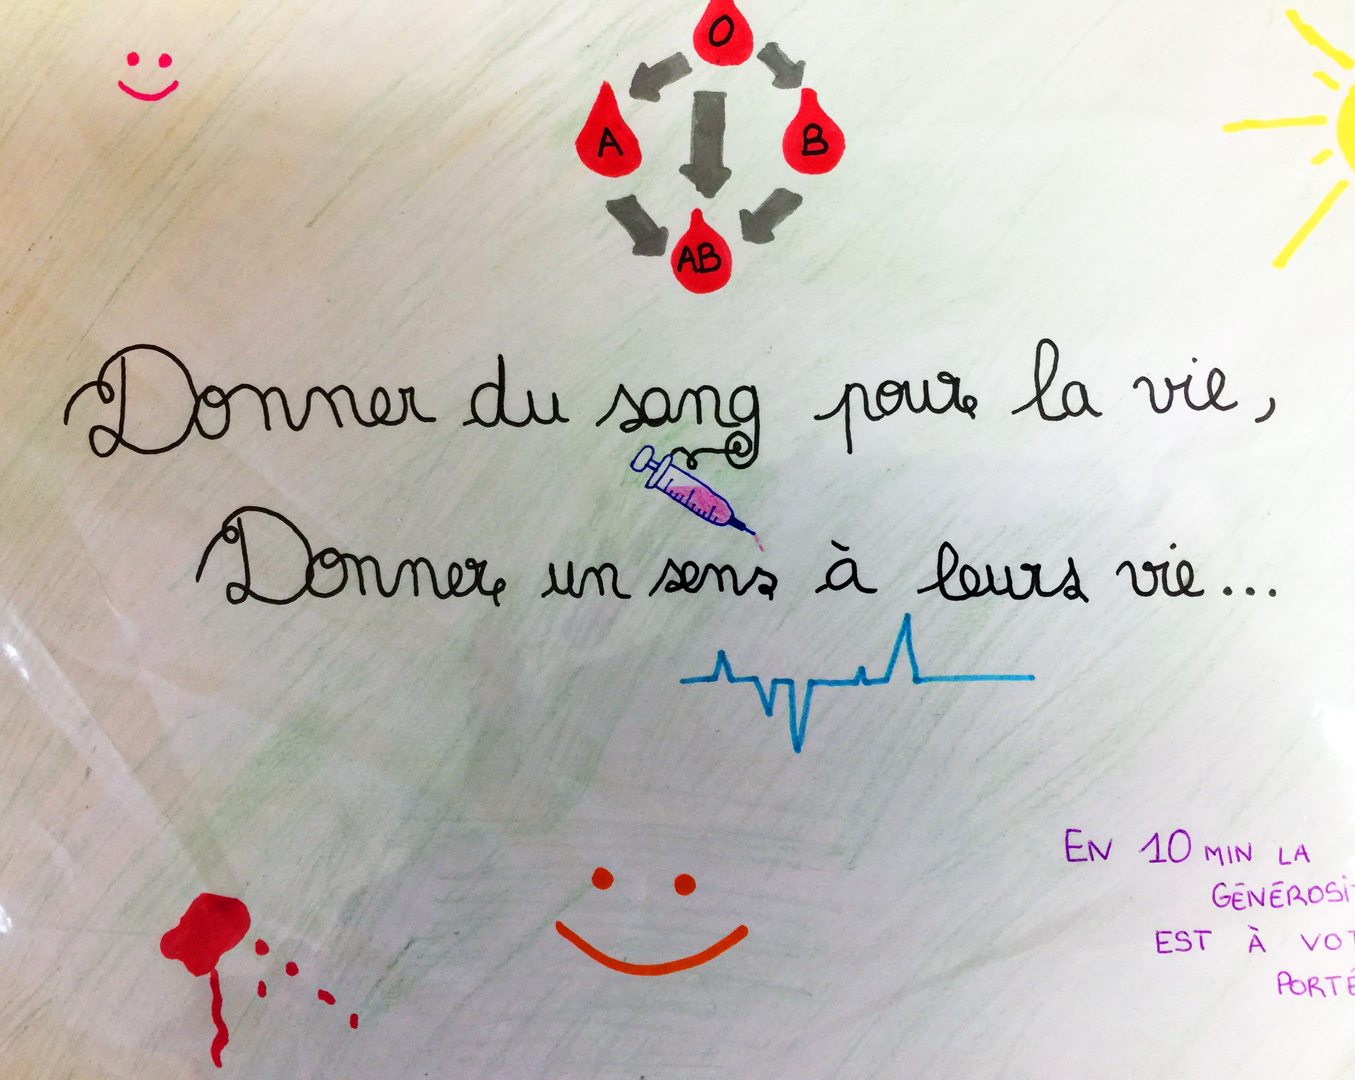 O
A B
AB
Donner du sang pour la vie,
Donner un sens à leurs vie...
EN 10 MIN LA
GÉNÉROSI
EST À VOT
PORTÉ